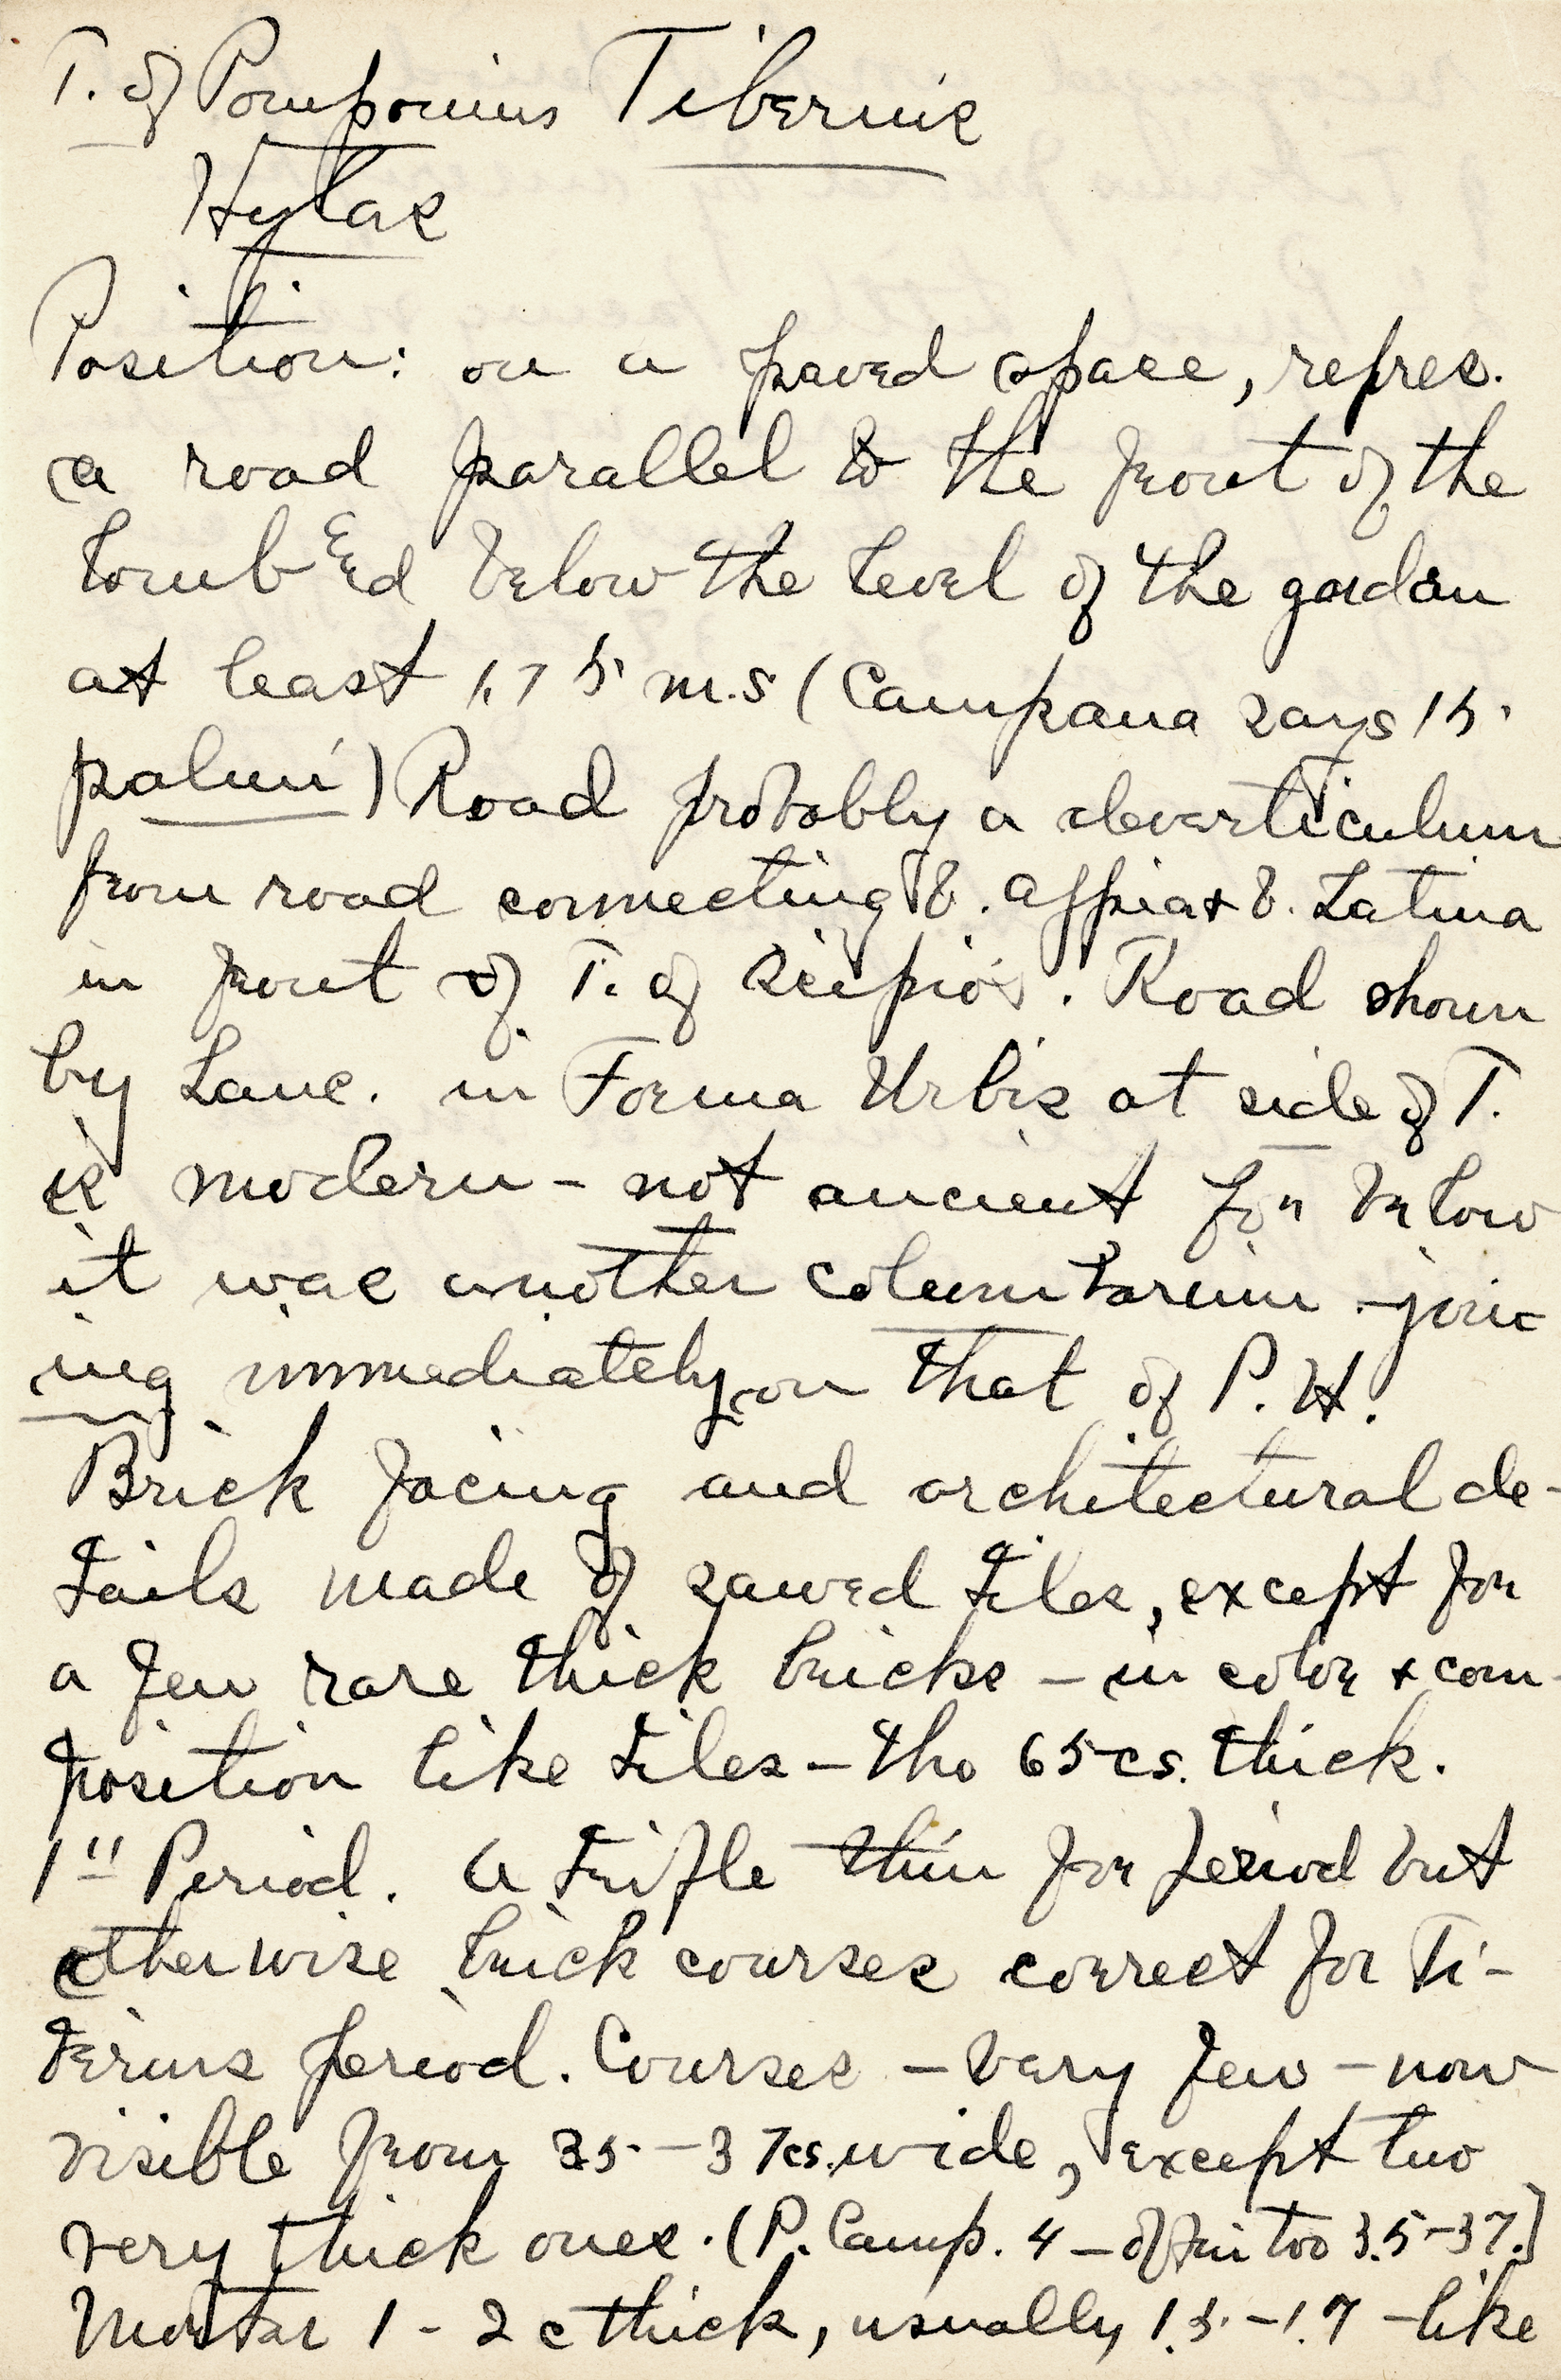 T. of Pomponius Tiberius
Hylas
Position: on a paved space, repres.
a road parallel to the front of the
tomb and below the level of the garden
at least 1.75 m.s (Campana says 15
palmi) Road probably a deverticulum
from road connecting V. Appia + V. Latina
in front of T. of Scipios. Road shown
by Lanc. in Forma Urbis at side of T.
is modern - not ancient for below
it was another columbarium - join
ing immediately on that of P. H.
Brick facing and architectural de-
tails made of sawed tiles, except for
a few rare thick bricks - in color + com-
position like tiles - tho 65 cs. thick.
1st Period. A trifle thin for period but
otherwise brick courses correct for Ti-
berius period. Courses - very few - now
visible from 35 - 37 cs. wide, except two
very thick ones. (P. Camp. 4 - often too 3.5-37.)
Mortar 1 - 2 c thick, usually 1.5 - 1.7 - like